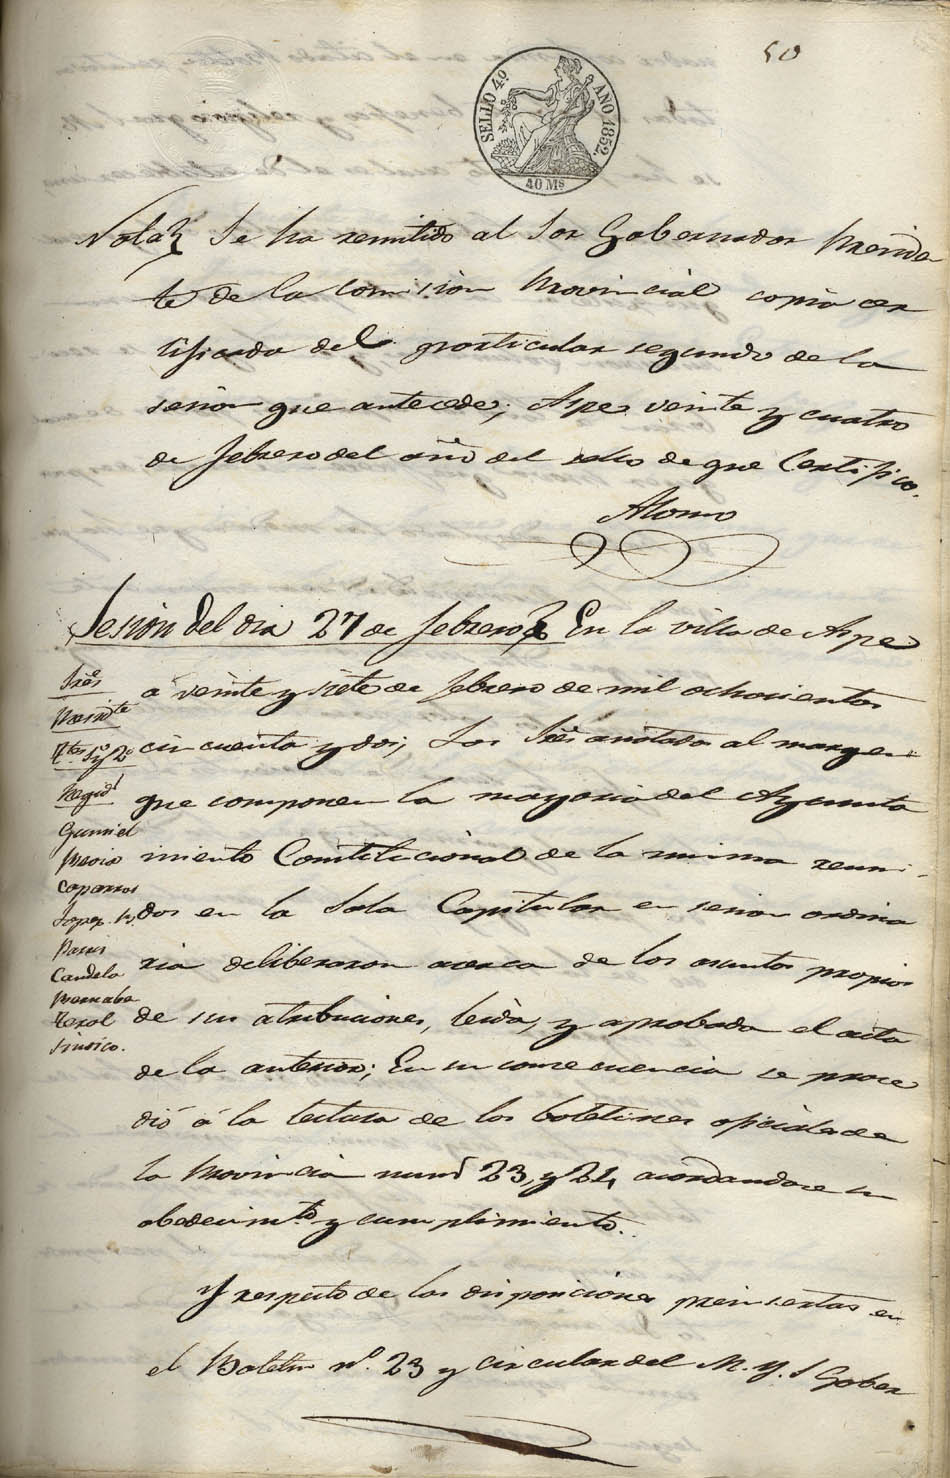 50
SELLO 4º AÑO 1852.
40 Ms
Nota Se ha remitido al Sor Gobernador Presiden
te de la Comision Provincial copia cer
tificada del particular segundo de la
sesion que antecede; Aspe veinte y cuatro
de febrero del año del sello de que Certifico.
Alonso
Sesion del dia 27 de febrero En la villa de Aspe
á veinte y siete de febrero de mil ochocientos
cincuenta y dos; Los Sres anotados al margen
que componen la mayoria del Ayunta
miento Constitucional de la misma reuni
dos en la Sala Capitular en sesion ordina
ria deliberaron acerca de los asuntos propios
de sus atribuciones, leida, y aprobada el acta
de la anterior; En su consecuencia se proce
dió á la lectura de los boletines oficiales de
la Provincia num 23, y 24, acordandose su
obedecimto y cumplimiento.
Y respecto de las disposiciones preinsertas en
el Boletin nº. 23 y circular del M. Y. S Gober
Sres
Presidte
Ttes 1º y 2º
Regid
Gumiel
Caparros
Lopez
Candela
Bernabe
Sindico.